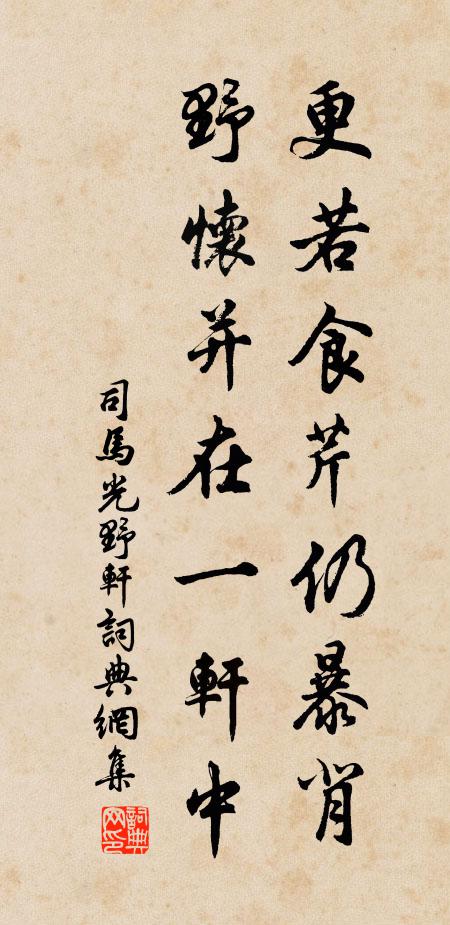 更若食芹仍暴背
野懷并在一軒中
司馬光野軒詞典網集
詞典網印